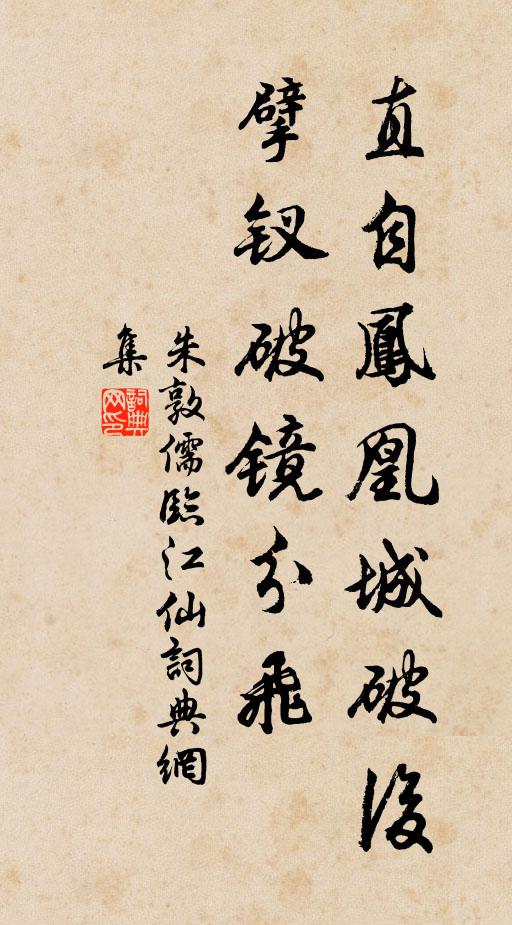 直自鳳凰城破後
擘钗破镜分飛
朱敦儒臨江仙詞典網
集
詞典网印